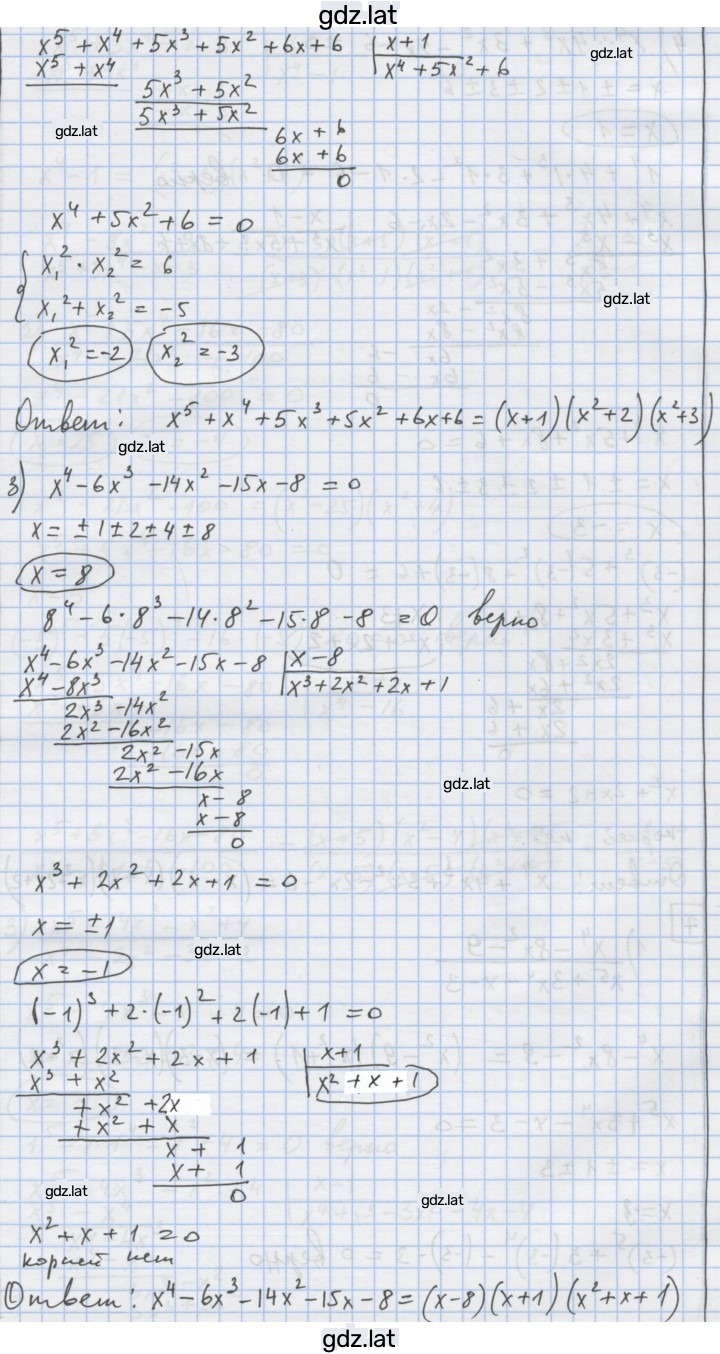 gdz.lat
x⁵ + x⁴ + 5x³ + 5x² + 6x + 6 | x + 1
x⁵ + x⁴ x⁴ + 5x² + 6
gdz.lat
5x³ + 5x²
5x³ + 5x²
gdz.lat
6x + 6
6x + 6
0
x⁴ + 5x² + 6 = 0
{ x₁² · x₂² = 6
x₁² + x₂² = -5
gdz.lat
x₁² = -2 x₂² = -3
Ответ: x⁵ + x⁴ + 5x³ + 5x² + 6x + 6 = (x+1)(x²+2)(x²+3)
gdz.lat
3) x⁴ - 6x³ - 14x² - 15x - 8 = 0
x = ± 1 ± 2 ± 4 ± 8
x = 8
8⁴ - 6 · 8³ - 14 · 8² - 15 · 8 - 8 = 0 верно
x⁴ - 6x³ - 14x² - 15x - 8 | x - 8
x⁴ - 8x³ x³ + 2x² + 2x + 1
2x³ - 14x²
2x² - 16x²
2x² - 15x
2x² - 16x
gdz.lat
x - 8
x - 8
0
x³ + 2x² + 2x + 1 = 0
x = ± 1
gdz.lat
x = -1
(-1)³ + 2 · (-1)² + 2(-1) + 1 = 0
x³ + 2x² + 2x + 1 | x + 1
x³ + x² x² + x + 1
+ x² + 2x
+ x² + x
x + 1
x + 1
0
gdz.lat
gdz.lat
x² + x + 1 = 0
корней нет
Ответ: x⁴ - 6x³ - 14x² - 15x - 8 = (x-8)(x+1)(x²+x+1)
gdz.lat